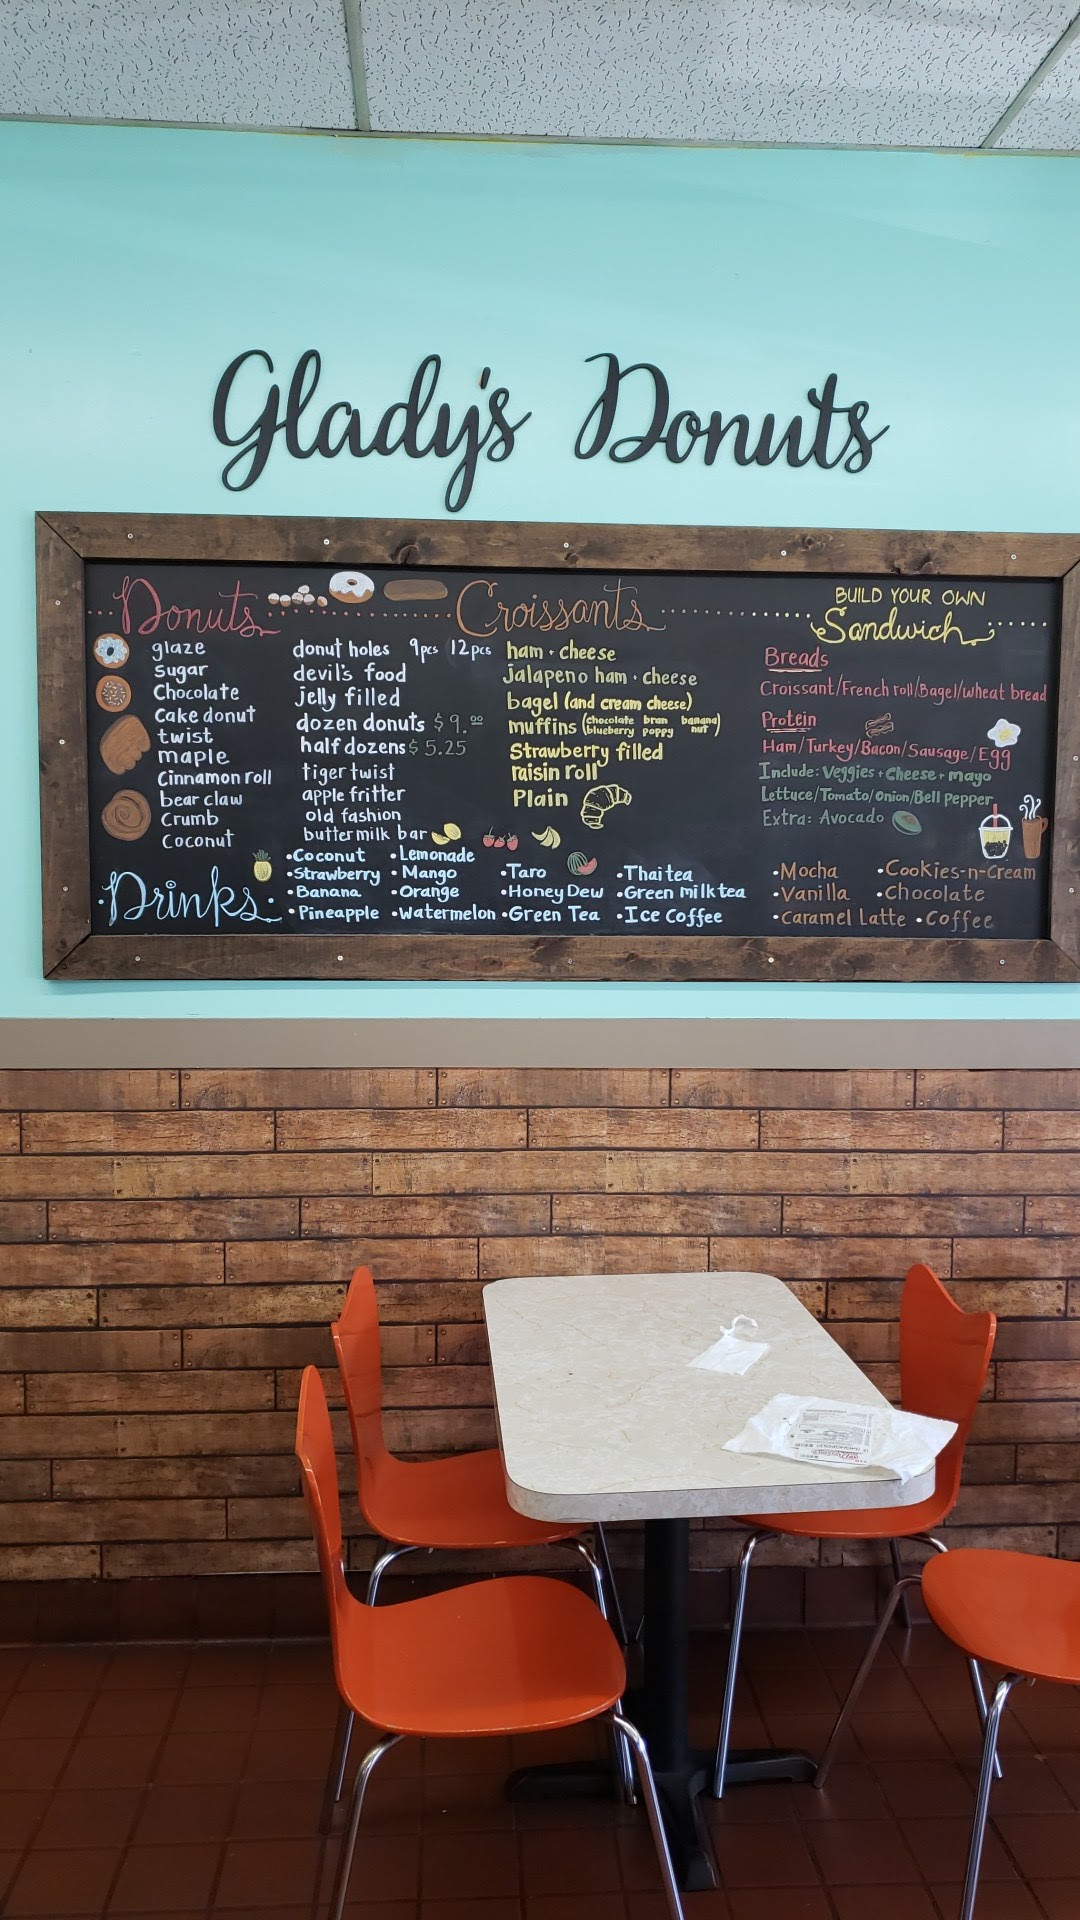 Glady's Donuts
Donuts
glaze
Sugar
Chocolate
Cake donut
twist
maple
Cinnamon roll
bear claw
Crumb
Coconut
donut holes 9pcs 12pcs
devil's food
jelly filled
dozen donuts $9.00
half dozens $5.25
tiger twist
apple fritter
old fashion
buttermilk bar
Croissants
ham + cheese
Jalapeno ham + cheese
bagel (and cream cheese)
muffins (chocolate bran banana
blueberry poppy nut)
Strawberry filled
raisin roll
Plain
BUILD YOUR OWN
Sandwich
Breads
Croissant/French roll/Bagel/wheat bread
Protein
Ham/Turkey/Bacon/Sausage/Egg
Include: Veggies + Cheese + mayo
Lettuce/Tomato/Onion/Bell pepper
Extra: Avocado
Drinks
•Coconut •Lemonade
•Strawberry •Mango •Taro •Thai tea
•Banana •Orange •Honey Dew •Green milk tea
•Pineapple •Watermelon •Green Tea •Ice Coffee
•Mocha •Cookies-n-Cream
•Vanilla •Chocolate
•Caramel Latte •Coffee